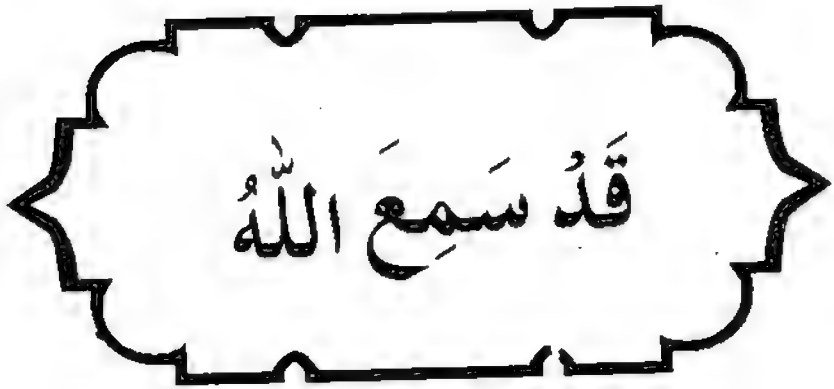 قَدْ سَمِعَ اللّٰهُ